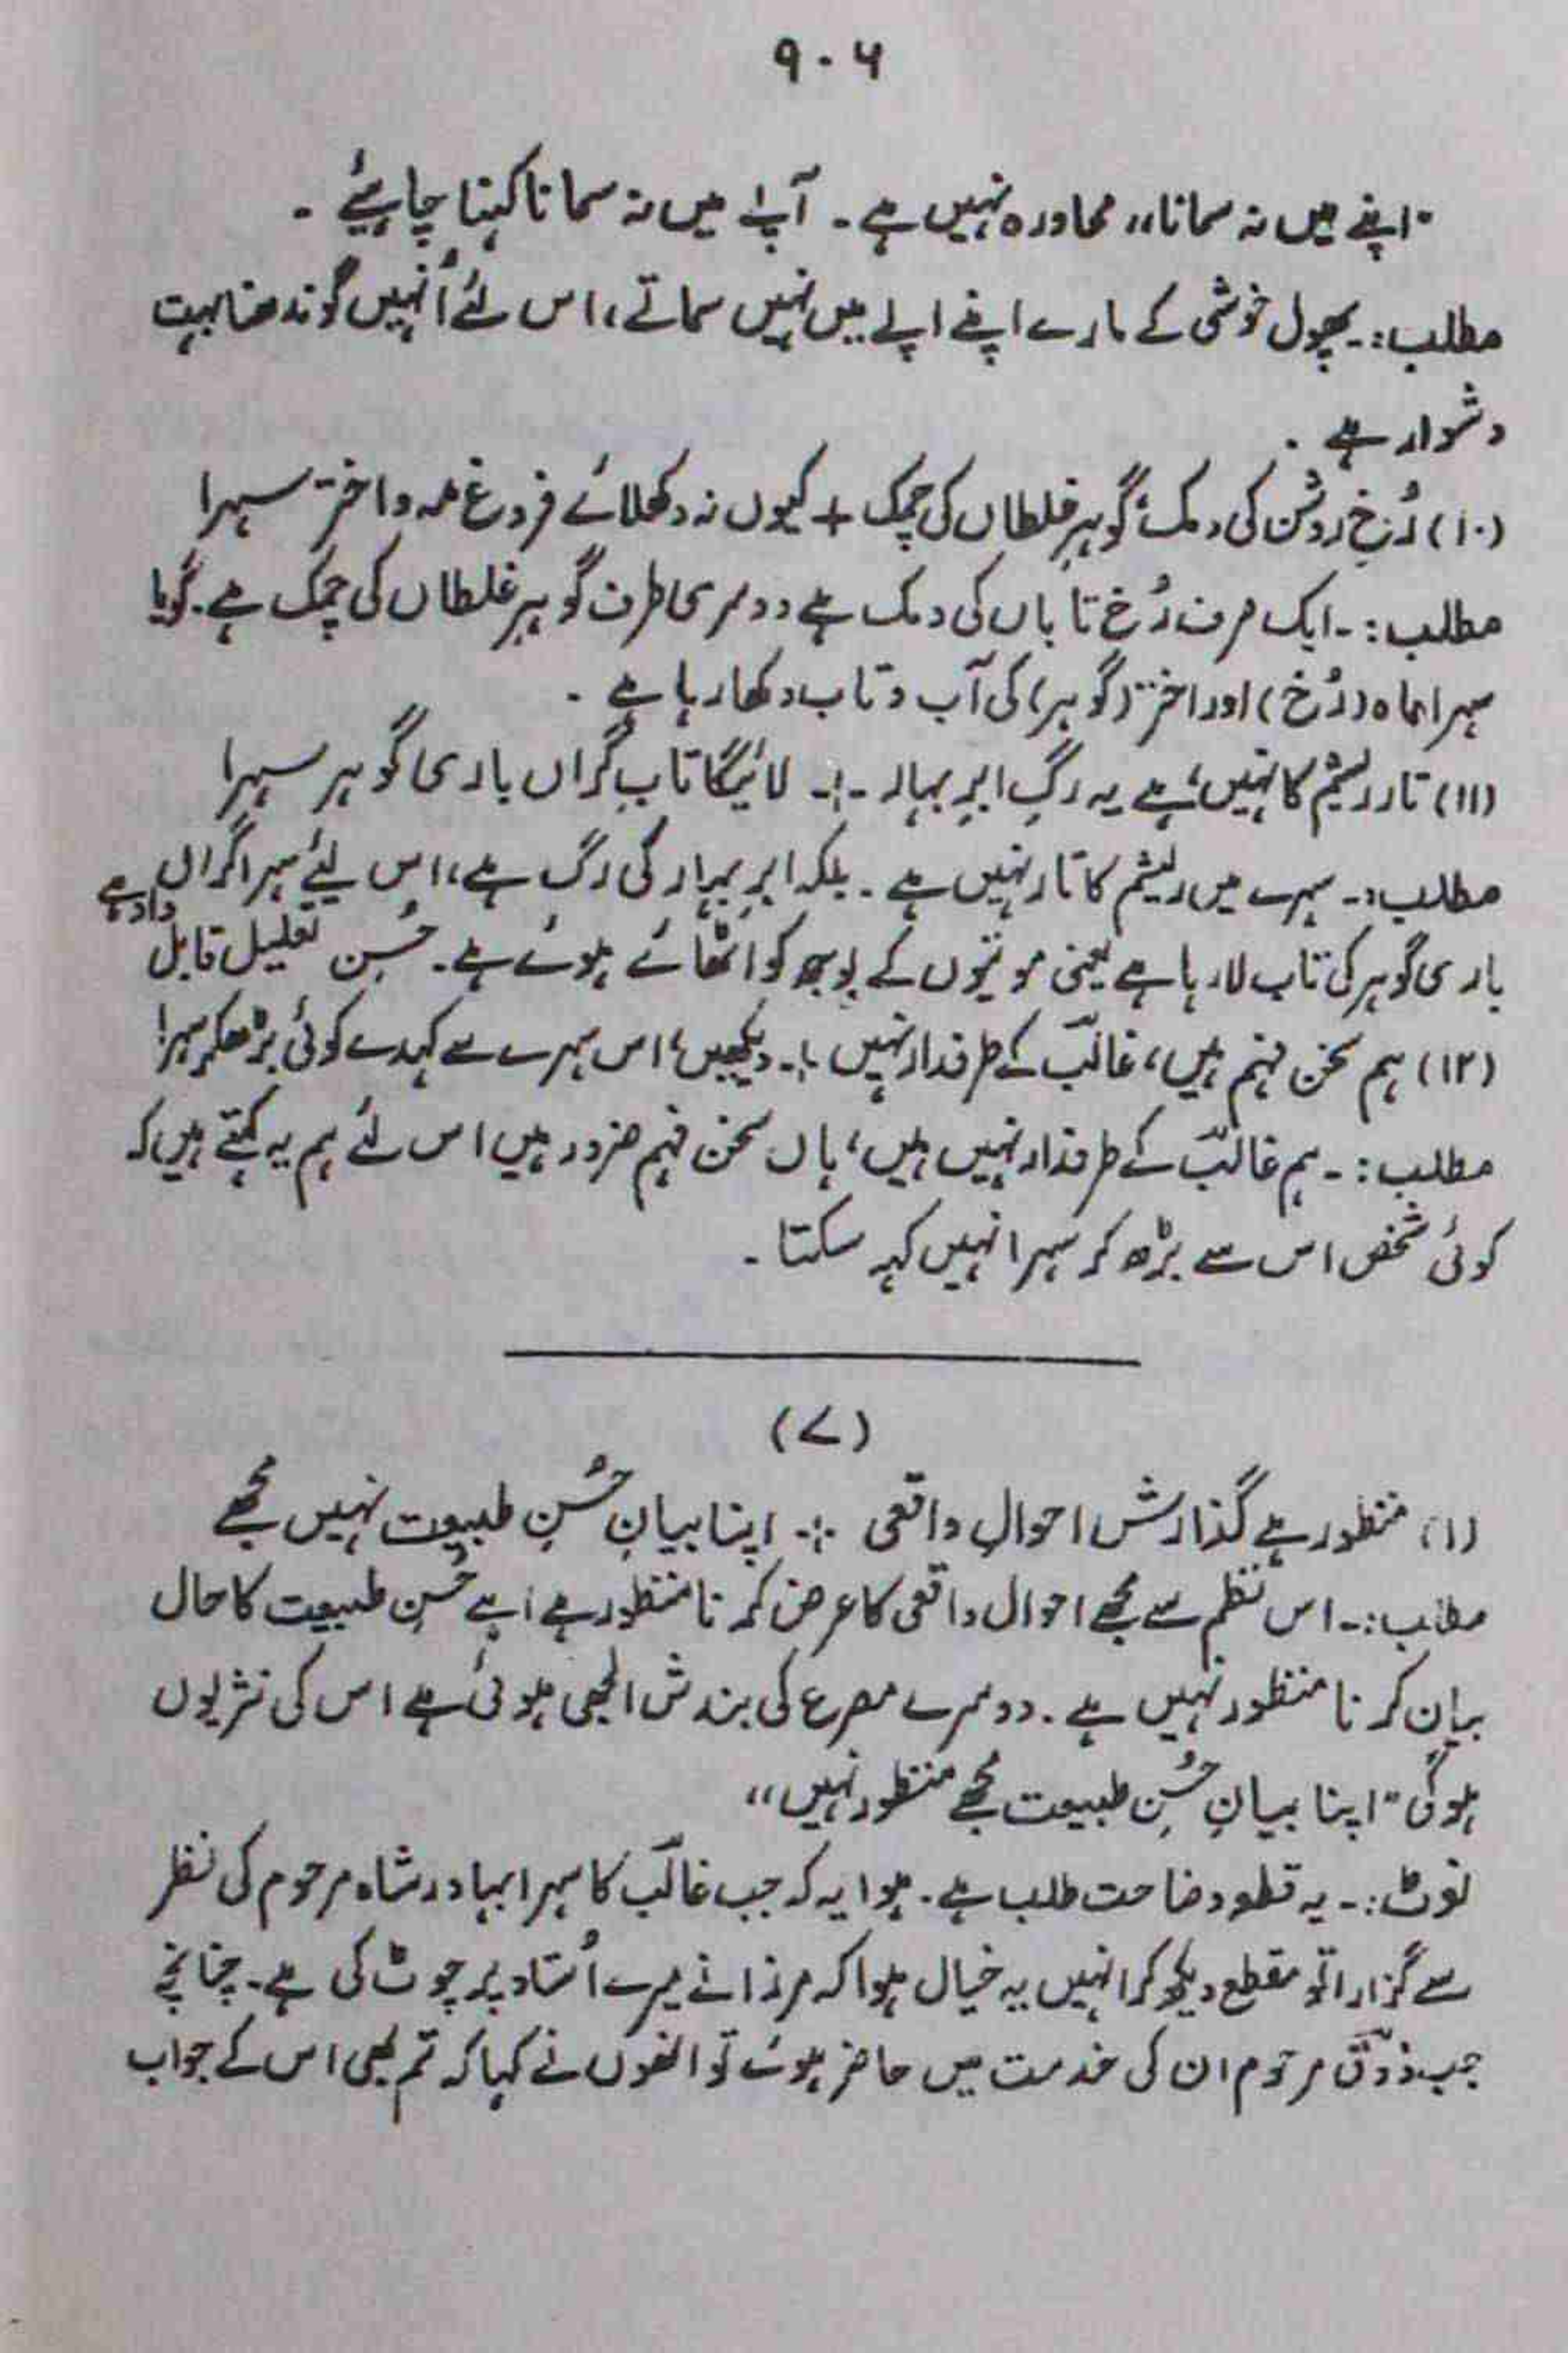 ۹۰۶
"اپنے میں نہ سمانا،، محاورہ نہیں ہے۔ آپے میں نہ سمانا کہنا چاہیئے۔
مطلب:۔ پھول خوشی کے مارے اپنے اپے میں نہیں سماتے، اس لئے اُنہیں گوندھنا بہت
دشوار ہے۔
(۱۰) رُخِ روشن کی دمک، گوہرِ غلطاں کی چمک + کیوں نہ دکھلائے فروغِ مہ و اختر سہرا
مطلب:۔ ایک طرف رُخ تاباں کی دمک ہے دوسری طرف گوہرِ غلطاں کی چمک ہے۔ گویا
سہرا ماہ (رُخ) اور اختر (گوہر) کی آب و تاب دکھا رہا ہے۔
(۱۱) تار ریشم کا نہیں، ہے یہ رگِ ابرِ بہار ۔:۔ لائیگا تابِ گراں باری گوہر سہرا
مطلب:۔ سہرے میں ریشم کا تار نہیں ہے۔ بلکہ ابرِ بہار کی رگ ہے، اس لیئے سہرا گراں
باری گوہر کی تاب لا رہا ہے یعنی موتیوں کے بوجھ کو اٹھائے ہوئے ہے۔ حُسنِ تعلیل قابل داد ہے
(۱۲) ہم سخن فہم ہیں، غالبؔ کے طرفدار نہیں ۔:۔ دیکھیں، اس سہرے سے کہدے کوئی بڑھکر سہرا
مطلب:۔ ہم غالبؔ کے طرفدار نہیں ہیں، ہاں سخن فہم ضرور ہیں اس لئے ہم یہ کہتے ہیں کہ
کوئی شخص اس سے بڑھ کر سہرا نہیں کہہ سکتا۔
(۷)
(۱) منظور ہے گذارش احوالِ واقعی ۔:۔ اپنا بیانِ حُسنِ طبیعت نہیں مجھے
مطلب:۔ اس نظم سے مجھے احوال واقعی کا عرض کرنا منظور ہے اپنے حُسنِ طبیعت کا حال
بیان کرنا منظور نہیں ہے۔ دوسرے مصرع کی بندش الجھی ہوئی ہے اس کی نثر یوں
ہوگی "اپنا بیانِ حُسنِ طبیعت مجھے منظور نہیں،،
نوٹ:۔ یہ قطعہ وضاحت طلب ہے۔ ہوا یہ کہ جب غالبؔ کا سہرا بہادر شاہ مرحوم کی نظر
سے گزرا تو مقطع دیکھ کر انہیں یہ خیال ہوا کہ مرزا نے میرے اُستاد پر چوٹ کی ہے۔ چنانچہ
جب ذوقؔ مرحوم ان کی خدمت میں حاضر ہوئے تو انھوں نے کہا کہ تم بھی اس کے جواب